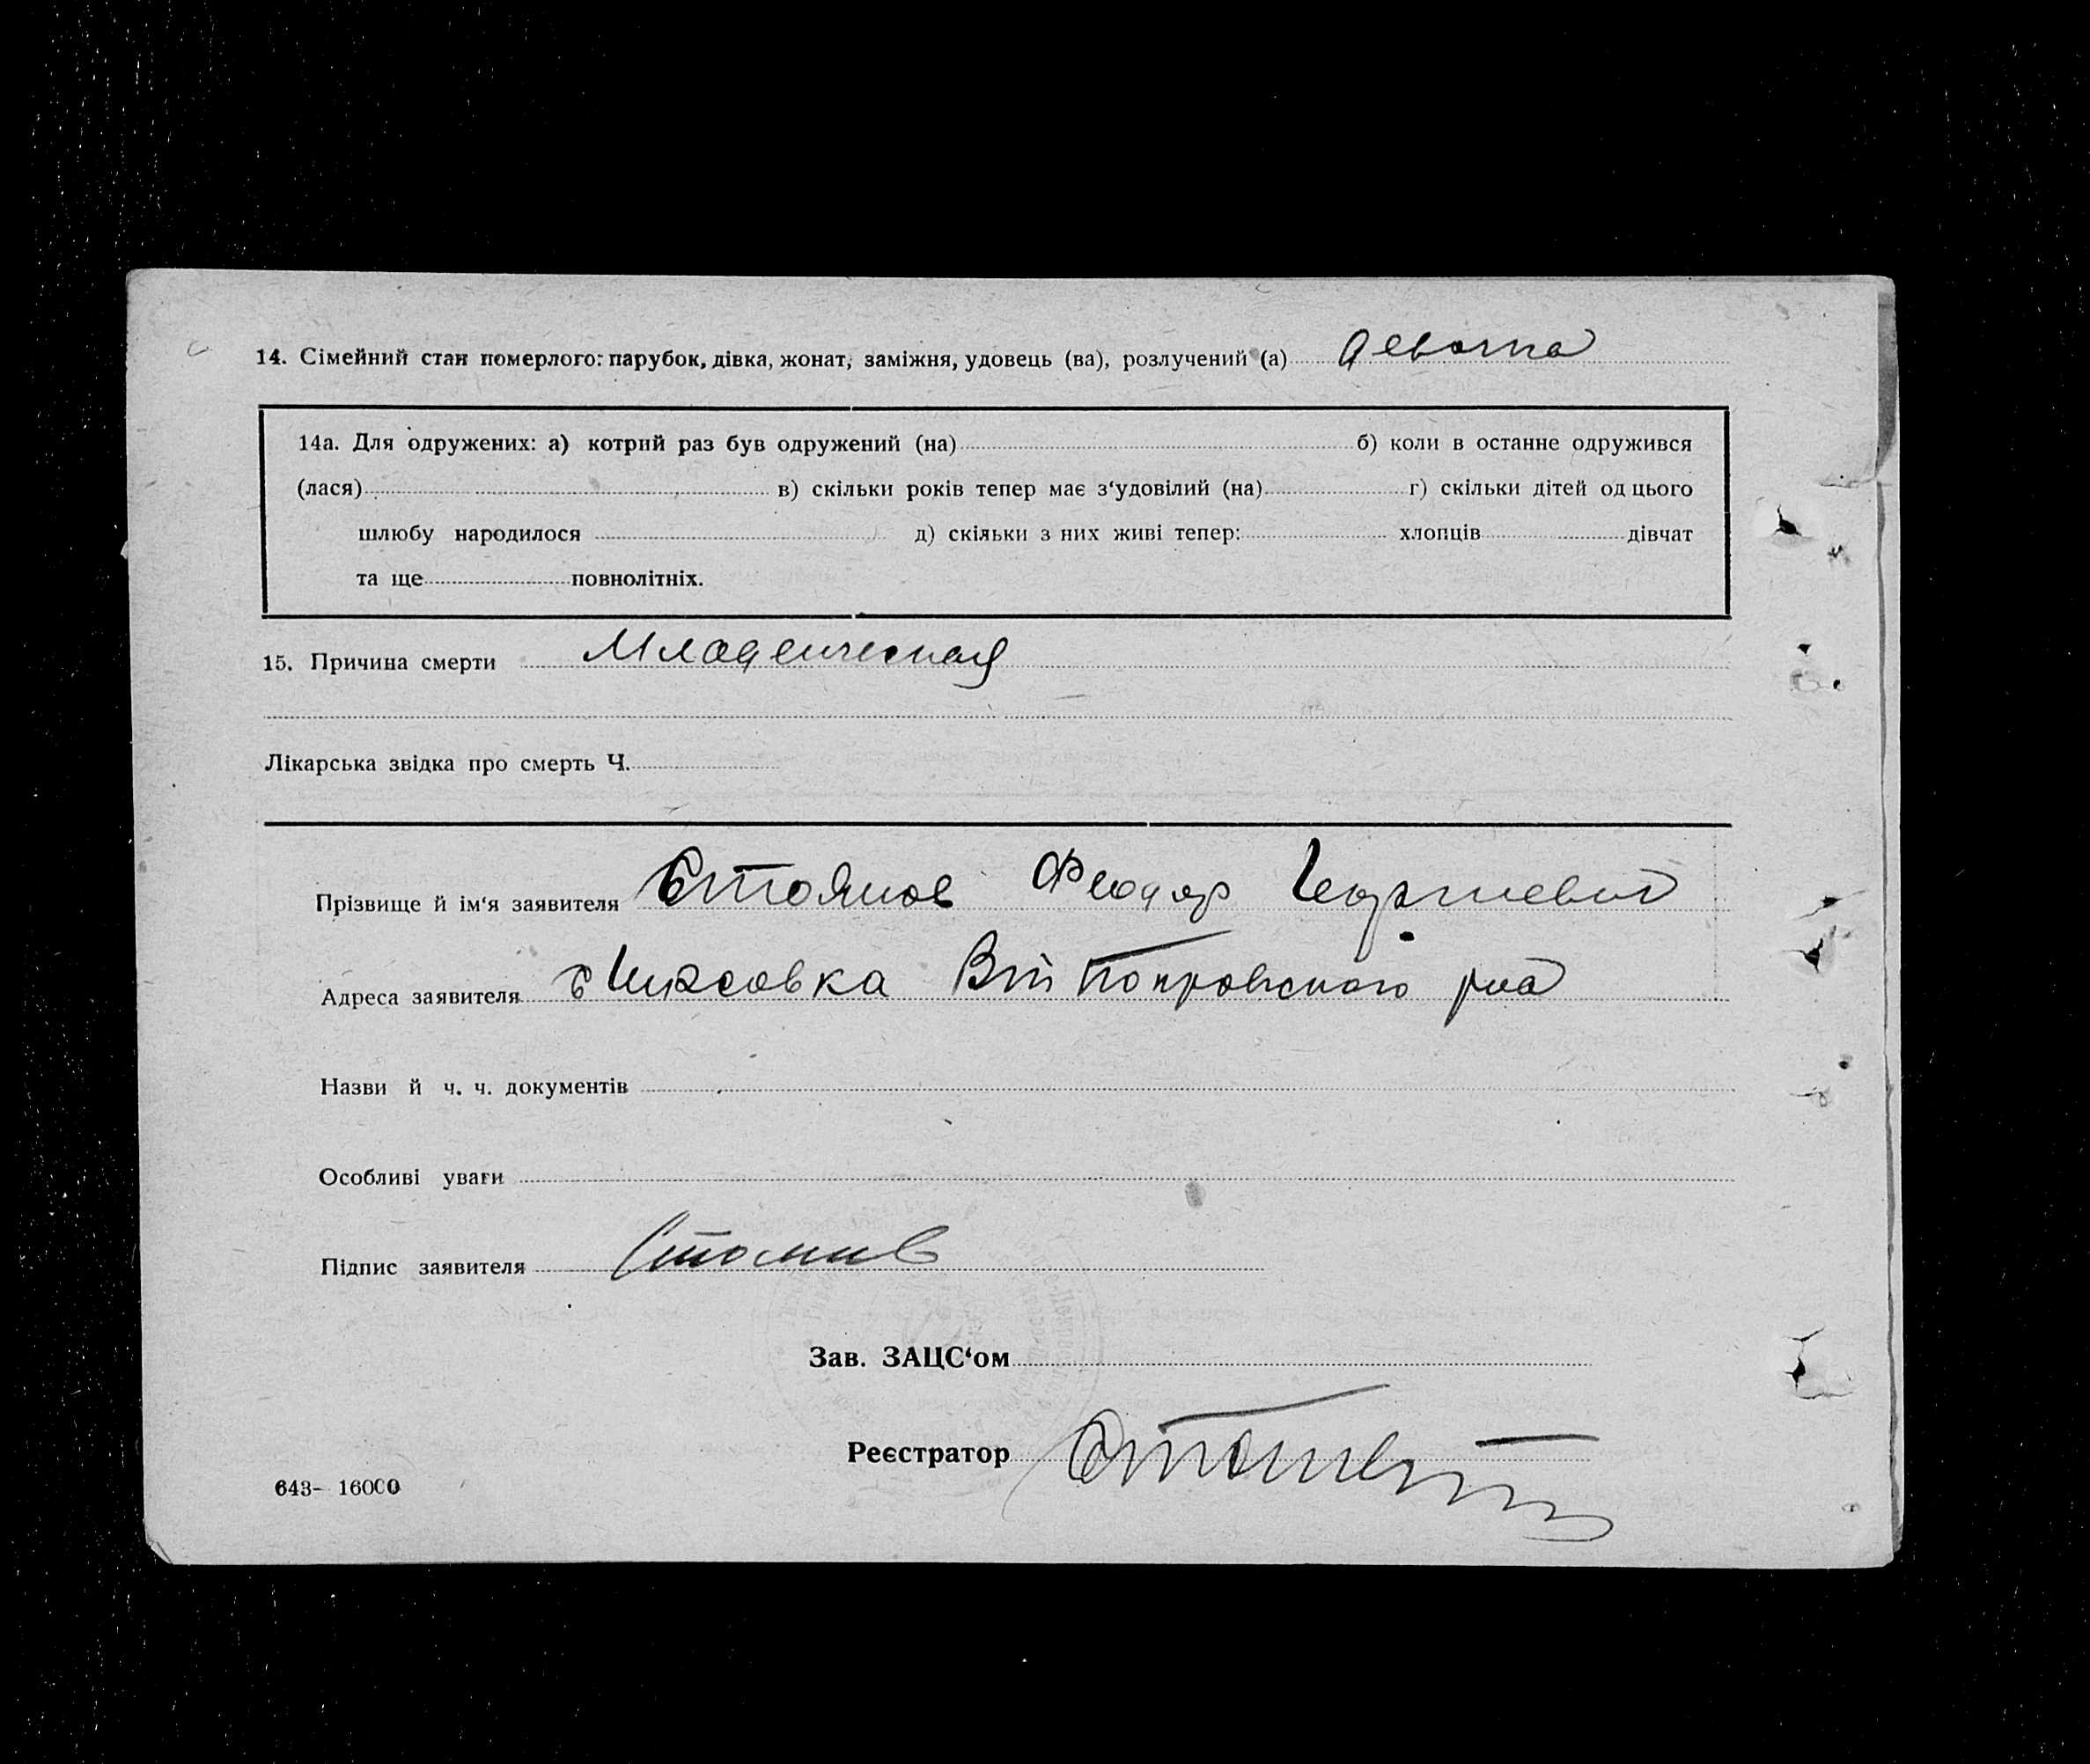 14. Сімейний стан померлого: парубок, дівка, жонат, заміжня, удовець (ва), розлучений (а) девочка
14а. Для одружених: а) котрий раз був одружений (на) б) коли в останне одружився
(лася) в) скільки років тепер має з‘удовілий (на) г) скільки дітей од цього
шлюбу народилося д) скільки з них живі тепер: хлопців дівчат
та ще повнолітніх.
15. Причина смерти Младенческая
Лікарська звідка про смерть Ч.
Прізвище й ім‘я заявителя Стоянов Феодор Георгиевич
Адреса заявителя с Покровского рна
Назви й ч. ч. документів
Особливі уваги
Підпис заявителя Стоянов
Зав. ЗАЦС‘ом
Реєстратор
643– 16000